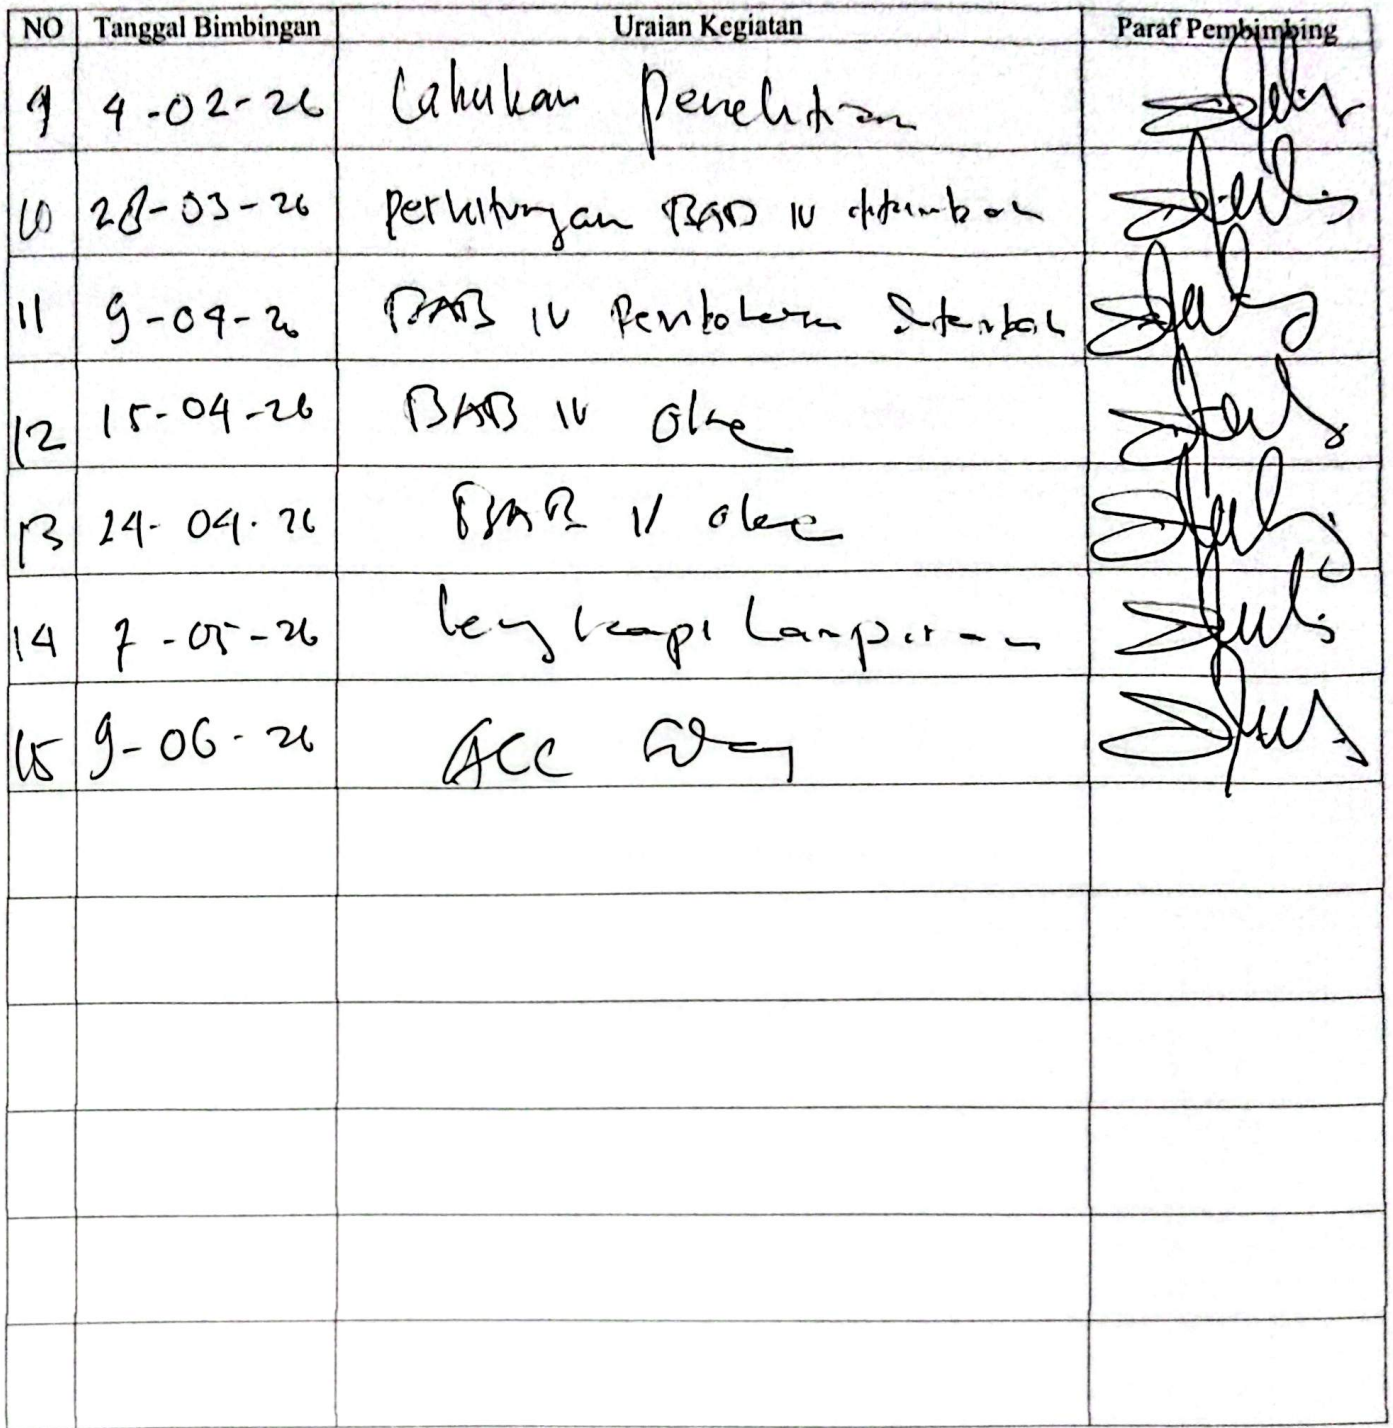 NO Tanggal Bimbingan Uraian Kegiatan Paraf Pembimbing
9 4-02-26 Lakukan Penelitian
10 28-03-26 Perhitungan BAB IV ditambah
11 9-04-26 BAB IV ditambah
12 15-04-26 BAB IV oke
13 24-04-26 BAB V oke
14 7-05-26 lengkapi Lampiran
15 9-06-26 ACC